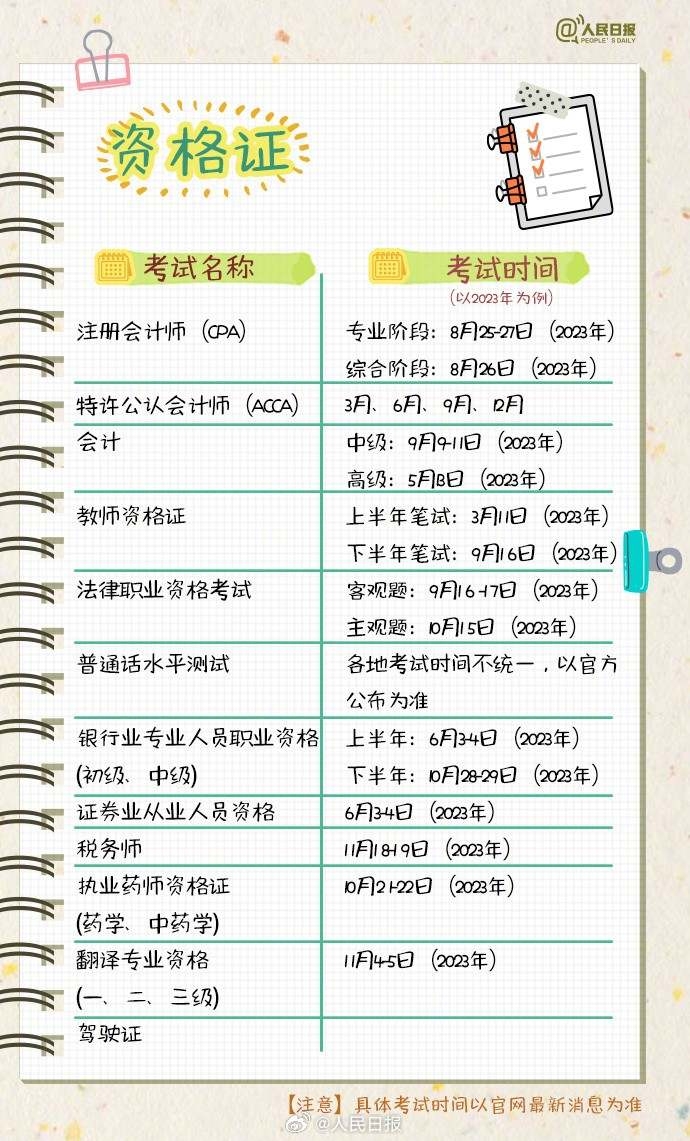 @人民日报
PEOPLE'S DAILY
资格证
考试名称
考试时间
(以2023年为例)
注册会计师（CPA）
专业阶段：8月25-27日（2023年）
综合阶段：8月26日（2023年）
特许公认会计师（ACCA）
3月、6月、9月、12月
会计
中级：9月9-11日（2023年）
高级：5月13日（2023年）
教师资格证
上半年笔试：3月11日（2023年）
下半年笔试：9月16日（2023年）
法律职业资格考试
客观题：9月16-17日（2023年）
主观题：10月15日（2023年）
普通话水平测试
各地考试时间不统一，以官方
公布为准
银行业专业人员职业资格
(初级、中级)
上半年：6月3-4日（2023年）
下半年：10月28-29日（2023年）
证券业从业人员资格
6月3-4日（2023年）
税务师
11月18-19日（2023年）
执业药师资格证
(药学、中药学)
10月21-22日（2023年）
翻译专业资格
(一、二、三级)
11月4-5日（2023年）
驾驶证
【注意】具体考试时间以官网最新消息为准
@人民日报